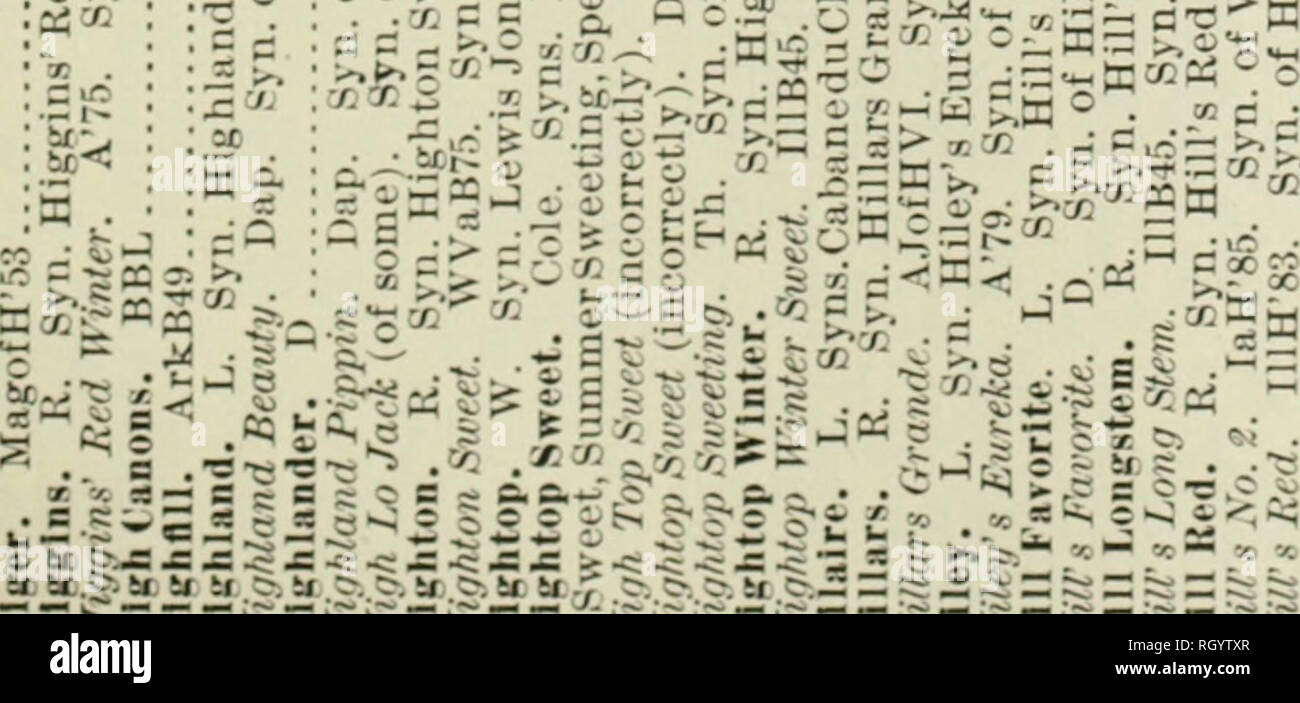 iger. MagofH'53
iggins. R. Syn. Higgins' Re
iggins' Red Winter. A'75. S
igh Canons. BBL
ighfill. ArkB49
ighland. L. Syn. Highland
ighland Beauty. Dap. Syn.
ighlander. D
ighland Pippin. Dap. Syn.
igh Lo Jack (of some). Syn.
ighton. R. Syn. Highton Sw
ighton Sweet. WVaB75. Syn
ightop. W. Syn. Lewis Jon
ightop Sweet. Cole. Syns.
Sweet, Summer Sweeting, Spe
igh Top Sweet (incorrectly).
ightop Sweet (incorrectly). D
ightop Sweeting. Th. Syn. o
ightop Winter. R. Syn. Hig
ightop Winter Sweet. IllB45.
illaire. L. Syns. CabaneduCh
illars. R. Syn. Hillars Gran
illars Grande. AJofHVI. Sy
iley. L. Syn. Hiley's Eurek
iley's Eureka. A'79. Syn. of
ill Favorite. L. Syn. Hill's
ill's Favorite. D. Syn. of Hil
ill Longstem. R. Syn. Hill'
ill's Long Stem. IllB45. Syn.
ill Red. R. Syn. Hill's Red
ill's No. 2. IaH'85. Syn. of W
ill's Red. IllH'83. Syn. of H
alamy
Image ID: RGYTXR
www.alamy.com